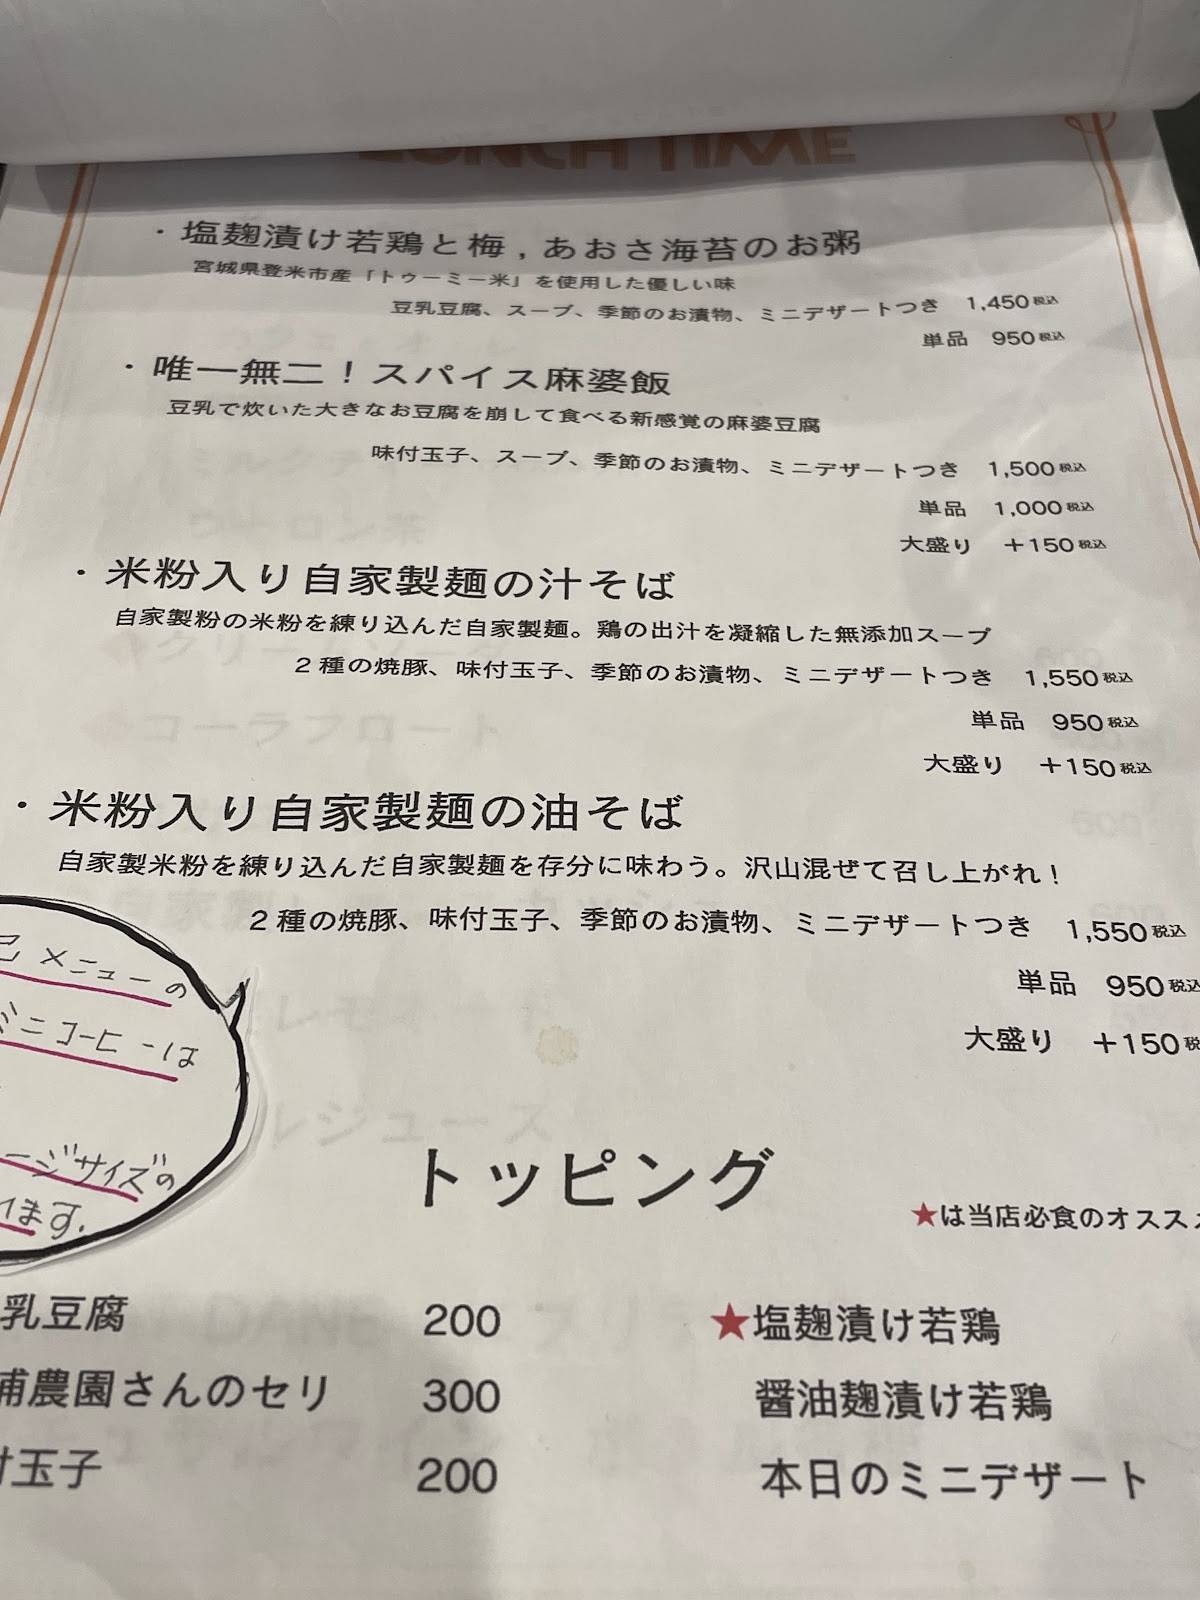 LUNCH TIME
・塩麹漬け若鶏と梅,あおさ海苔のお粥
宮城県登米市産「トゥーミー米」を使用した優しい味
豆乳豆腐、スープ、季節のお漬物、ミニデザートつき 1,450税込
単品 950税込
・唯一無二！スパイス麻婆飯
豆乳で炊いた大きなお豆腐を崩して食べる新感覚の麻婆豆腐
味付玉子、スープ、季節のお漬物、ミニデザートつき 1,500税込
単品 1,000税込
大盛り ＋150税込
・米粉入り自家製麺の汁そば
自家製粉の米粉を練り込んだ自家製麺。鶏の出汁を凝縮した無添加スープ
２種の焼豚、味付玉子、季節のお漬物、ミニデザートつき 1,550税込
単品 950税込
大盛り ＋150税込
・米粉入り自家製麺の油そば
自家製米粉を練り込んだ自家製麺を存分に味わう。沢山混ぜて召し上がれ！
２種の焼豚、味付玉子、季節のお漬物、ミニデザートつき 1,550税込
単品 950税込
大盛り ＋150税
メニューの
ミニコーヒーは
ージサイズの
います.
トッピング
★は当店必食のオススメ
乳豆腐 200
浦農園さんのセリ 300
付玉子 200
★塩麹漬け若鶏
醤油麹漬け若鶏
本日のミニデザート